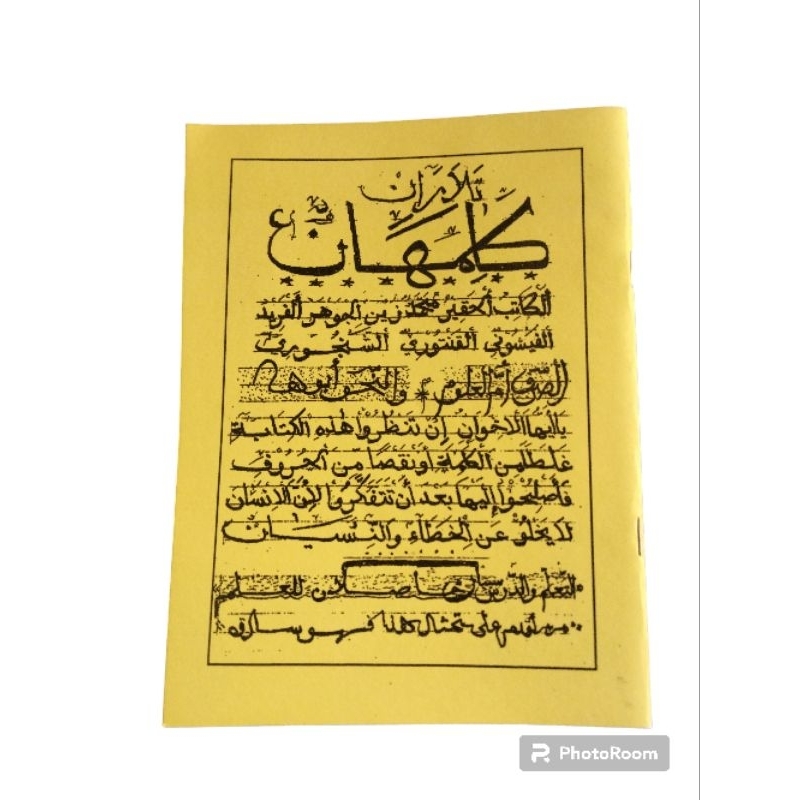 كلمهان
الكاتب الحقير محمد زين الجوهر الفريد
القنتوري الشنجوري
الصرف أم العلوم * والنحو أبوها
ياأيها الاخوان إن تنظروا هذه الكتابة
غلطا من الكلمة أو نقصا من الحروف
فأصلحوا إليها بعد أن تتفكروا لأن الانسان
لا يخلو عن الخطاء والنسيان
التعلم والدرس أصلان للعلم
على تمثال هذا فهو سارق
PhotoRoom